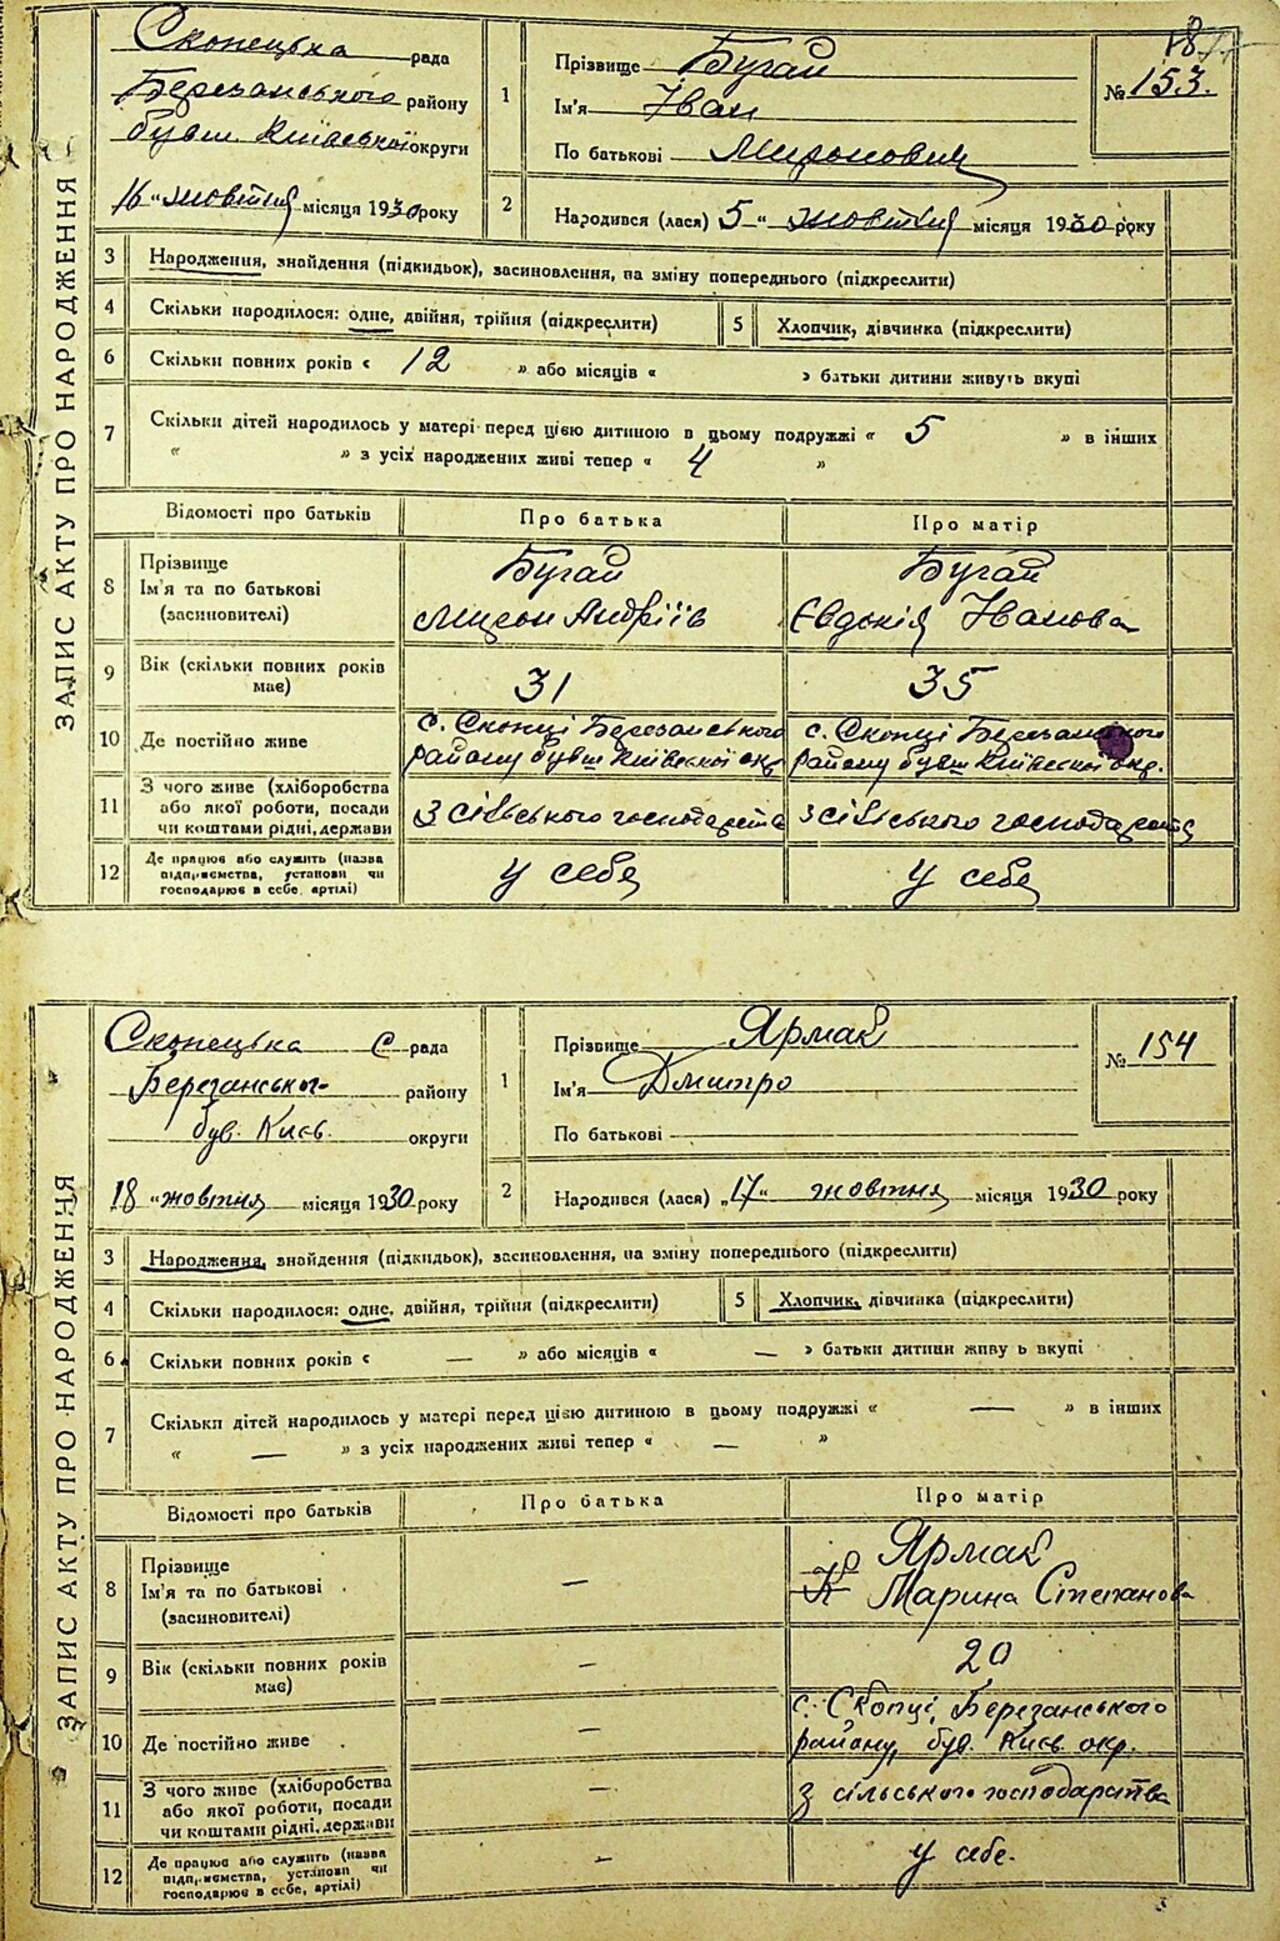 ЗАПИС АКТУ ПРО НАРОДЖЕННЯ
Скопецька рада
Березанського району
бувш. Київської округи
16 " жовтня місяця 1930 року
1
Прізвище Бугай
Ім'я Іван
По батькові Миронович
№ 153.
2
Народився (лася) 5 " жовтня місяця 1930 року
3 Народження, знайдення (підкидьок), засиновлення, на зміну попереднього (підкреслити)
4 Скільки народилося: одне, двійня, трійня (підкреслити) 5 Хлопчик, дівчинка (підкреслити)
6 Скільки повних років « 12 » або місяців « » батьки дитини живуть вкупі
7 Скільки дітей народилось у матері перед цією дитиною в цьому подружжі « 5 » в інших
« » з усіх народжених живі тепер « 4 »
Відомості про батьків Про батька Про матір
8 Прізвище Бугай Бугай
Ім'я та по батькові Мирон Андріїв Євдокія Іванова
(засиновителі)
9 Вік (скільки повних років має) 31 35
10 Де постійно живе с. Скопці Березанського с. Скопці Березанського
району бувш Київської окр району бувш Київської окр.
11 З чого живе (хліборобства
або якої роботи, посади З сільського господарства З сільського господарства
чи коштами рідні, держави
12 Де працює або служить (назва
підприємства, установи чи у себе у себе
господарює в себе, артілі)
ЗАПИС АКТУ ПРО НАРОДЖЕННЯ
Скопецька с рада
Березанськ- району
був. Києв. округи
18 " жовтня місяця 1930 року
1
Прізвище Ярмак
Ім'я Дмитро
По батькові
№ 154
2
Народився (лася) „17" жовтня місяця 1930 року
3 Народження, знайдення (підкидьок), засиновлення, на зміну попереднього (підкреслити)
4 Скільки народилося: одне, двійня, трійня (підкреслити) 5 Хлопчик, дівчинка (підкреслити)
6 Скільки повних років « — » або місяців « — » батьки дитини живу ь вкупі
7 Скільки дітей народилось у матері перед цією дитиною в цьому подружжі « — » в інших
« — » з усіх народжених живі тепер « — »
Відомості про батьків Про батька Про матір
8 Прізвище Ярмак
Ім'я та по батькові — Марина Степанова
(засиновителі)
9 Вік (скільки повних років має) — 20
10 Де постійно живе — с. Скопці, Березанського
району, був. Києв. окр.
11 З чого живе (хліборобства
або якої роботи, посади — З сільського господарства
чи коштами рідні, держави
12 Де працює або служить (назва
підприємства, установи чи — у себе.
господарює в себе, артілі)